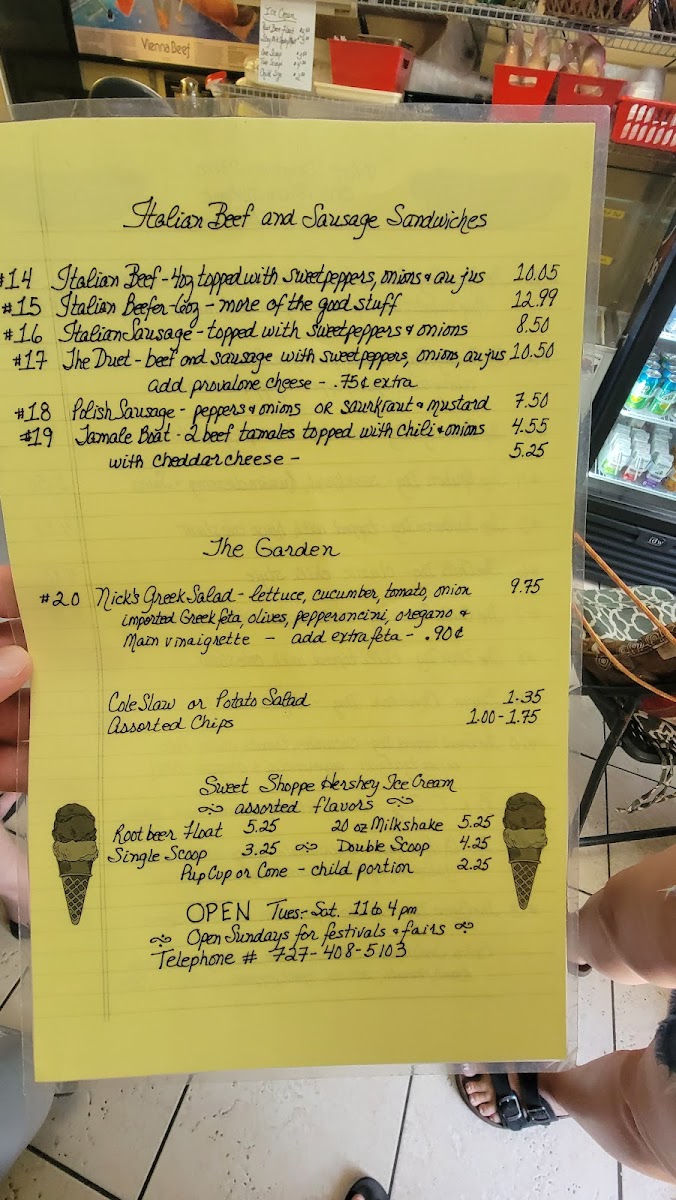 Vienna Beef
Ice Cream
Italian Beef and Sausage Sandwiches
#14 Italian Beef - 4oz topped with sweet peppers, onions & au jus 10.05
#15 Italian Beefer - 6oz - more of the good stuff 12.99
#16 Italian Sausage - topped with sweet peppers & onions 8.50
#17 The Duet - beef and sausage with sweet peppers, onions, au jus 10.50
add provalone cheese - .75¢ extra
#18 Polish Sausage - peppers & onions OR saurkraut & mustard 7.50
#19 Tamale Boat - 2 beef tamales topped with chili & onions 4.55
with cheddar cheese - 5.25
The Garden
#20 Nick's Greek Salad - lettuce, cucumber, tomato, onion 9.75
imported Greek feta, olives, pepperoncini, oregano &
Main vinaigrette - add extra feta - .90¢
Cole Slaw or Potato Salad 1.35
Assorted Chips 1.00-1.75
Sweet Shoppe Hershey Ice Cream
assorted flavors
Root beer Float 5.25 20 oz Milkshake 5.25
Single Scoop 3.25 Double Scoop 4.25
Pup Cup or Cone - child portion 2.25
OPEN Tues.-Sat. 11 to 4 pm
Open Sundays for festivals & fairs
Telephone # 727-408-5103